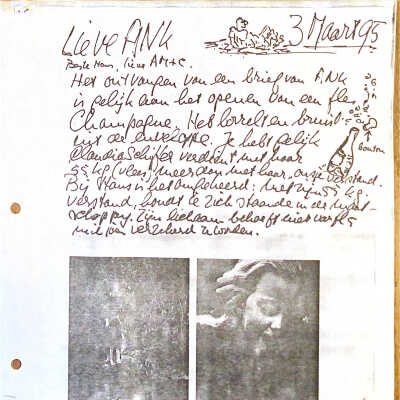 Lieve Ank 3 Maart 95
Beste Hans, lieve AM+C.
Het ontvangen van een brief van Ank
is gelijk aan het openen van een fles
Champagne. Het borrelt en bruist
uit de enveloppe. Je hebt gelijk
Claudia Schiffer verdient met haar
55 kg (vlees) meer dan met haar verstand.
Bij Hans is het omgekeerd: met zijn kg.
verstand, houdt ie zich staande in de
schappy. Zijn lichaam behoeft niet voor
miljoen verzekerd te worden.